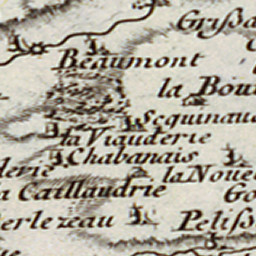 Grissa
Beaumont
la Bou
Seguinaud
la Viauderie
Chabanais
lerie
la Nouel
a Caillaudrie
Go
erlezeau
Peliss